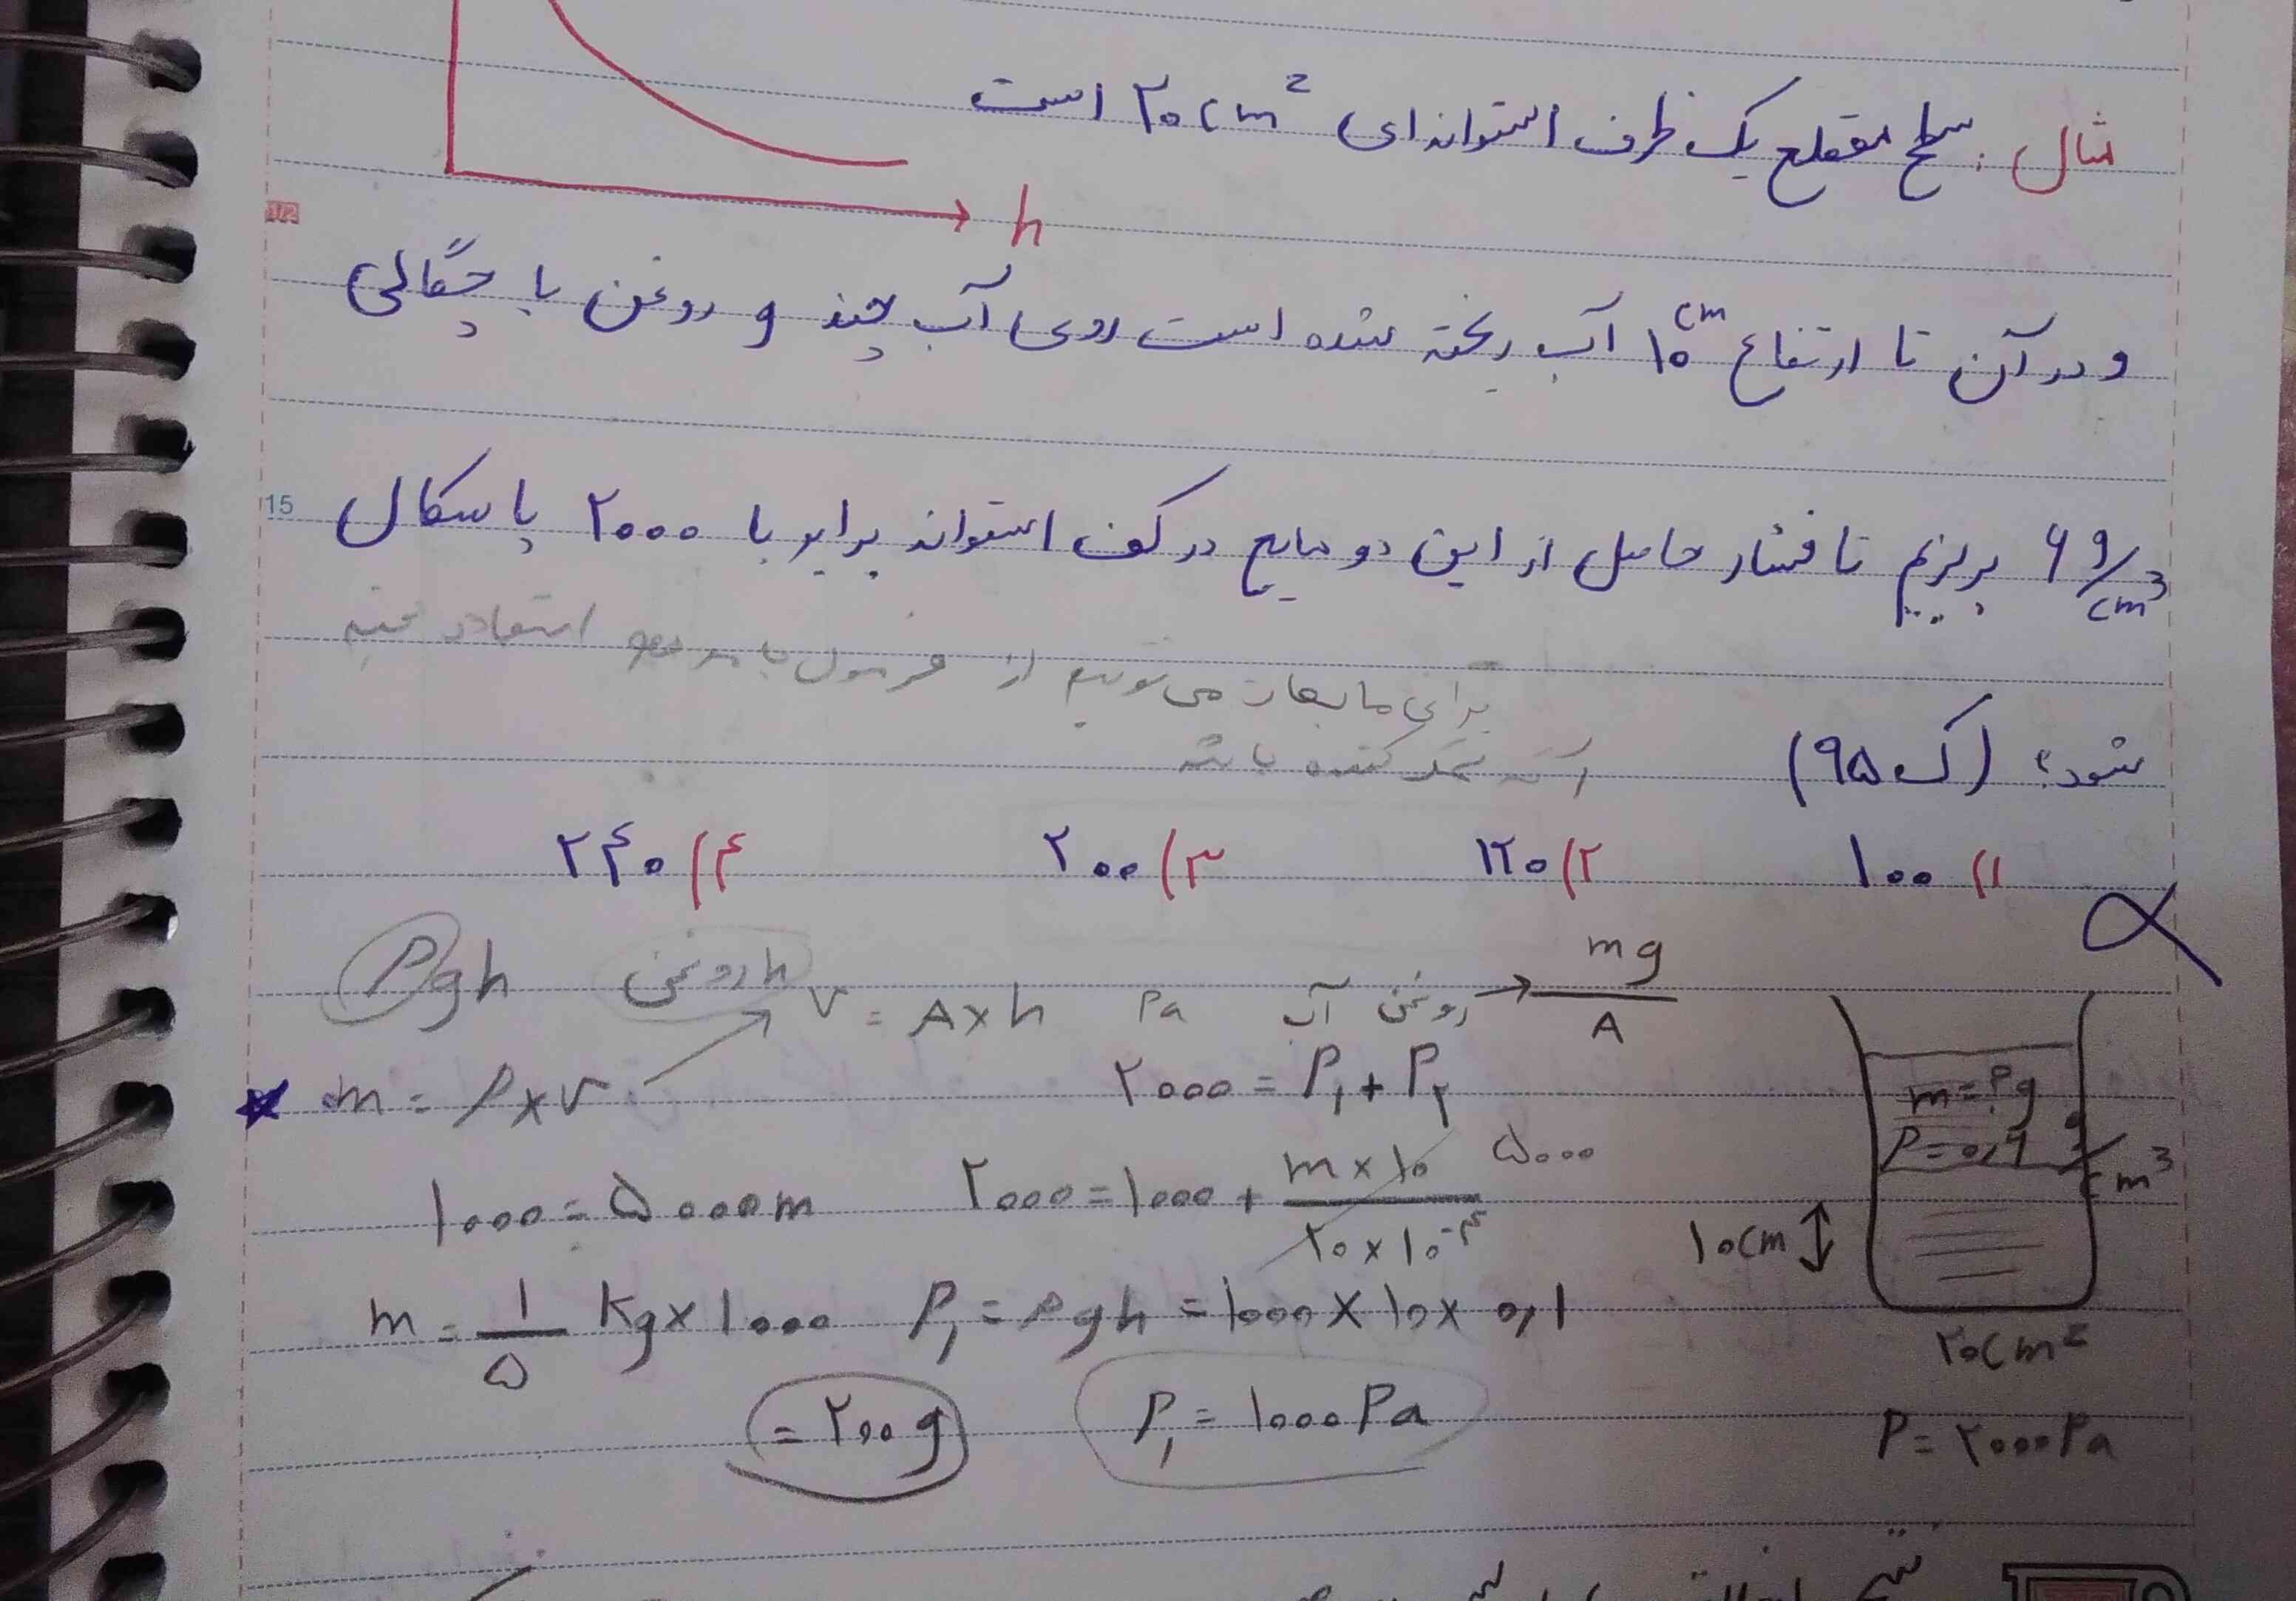 h
مثال : سطح مقطع یک ظرف استوانه‌ای ۲۰cm² است
و در آن تا ارتفاع ۱۰cm آب ریخته شده است روی آب چند g روغن با چگالی
۶ g/cm³ بریزیم تا فشار حاصل از این دو مایع در کف استوانه برابر با ۲۰۰۰ پاسکال
15
برای مایعات می‌تونیم از فرمول استفاده کنیم
شود؟ (ک ۹۵)
۱) ۱۰۰ ۲) ۱۲۰ ۳) ۲۰۰ ۴) ۲۴۰
ρgh h روغن V = A×h Pa آب روغن → mg/A
m = ρ×V ۲۰۰۰ = P₁ + P₂
m = ?g
ρ = ۰,۶ g/cm³
۱۰۰۰ = ۵۰۰۰m ۲۰۰۰ = ۱۰۰۰ + m×۱۰/۲۰×۱۰⁻⁴ ۵۰۰۰
۱۰cm
m = ۱/۵ Kg×۱۰۰۰ P₁ = ρgh = ۱۰۰۰×۱۰×۰,۱
۲۰cm²
= ۲۰۰g P₁ = ۱۰۰۰Pa
P = ۲۰۰۰Pa